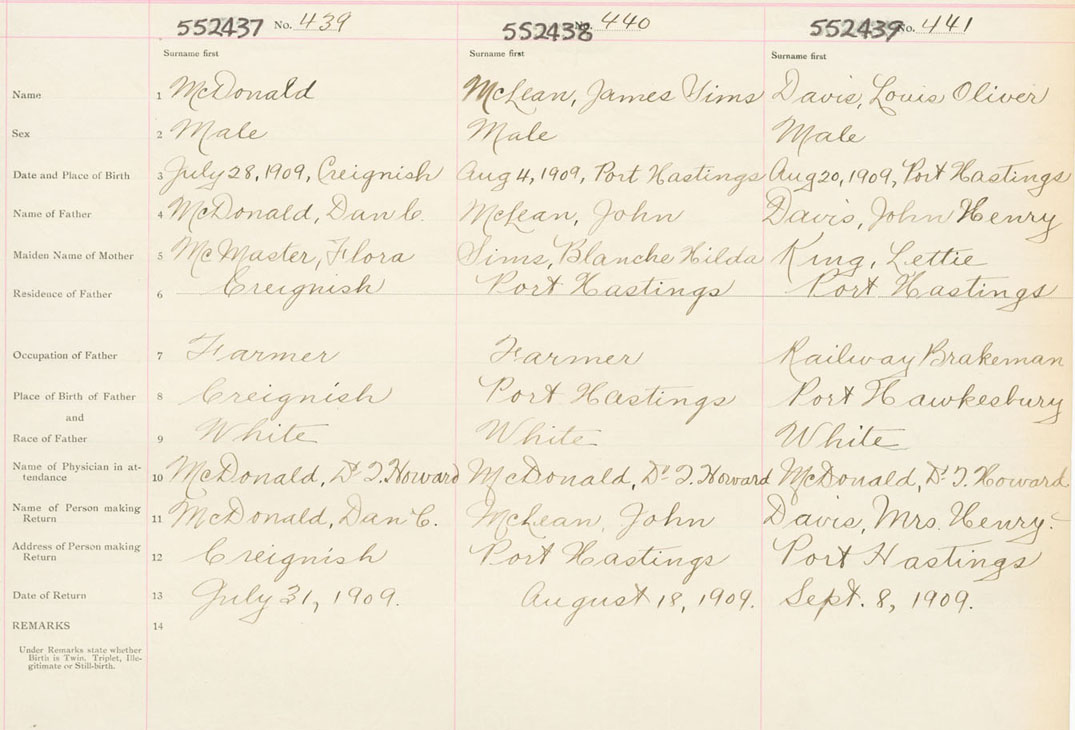 552437 No. 439 552438 No. 440 552439 No. 441
Surname first Surname first Surname first
Name 1 McDonald McLean, James Sims Davis, Louis Oliver
Sex 2 Male Male Male
Date and Place of Birth 3 July 28, 1909, Creignish Aug 4, 1909, Port Hastings Aug 20, 1909, Port Hastings
Name of Father 4 McDonald, Dan C. McLean, John Davis, John Henry
Maiden Name of Mother 5 McMaster, Flora Sims, Blanche Hilda King, Lettie
Residence of Father 6 Creignish Port Hastings Port Hastings
Occupation of Father 7 Farmer Farmer Railway Brakeman
Place of Birth of Father 8 Creignish Port Hastings Port Hawkesbury
and
Race of Father 9 White White White
Name of Physician in at-
tendance 10 McDonald, Dr T. Howard McDonald, Dr T. Howard McDonald, Dr T. Howard
Name of Person making
Return 11 McDonald, Dan C. McLean, John Davis, Mrs. Henry.
Address of Person making
Return 12 Creignish Port Hastings Port Hastings
Date of Return 13 July 31, 1909. August 18, 1909. Sept. 8, 1909.
REMARKS 14
Under Remarks state whether
Birth is Twin, Triplet, Ille-
gitimate or Still-birth.